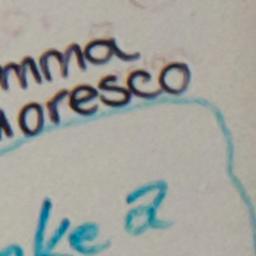 mma
oresco
ke a